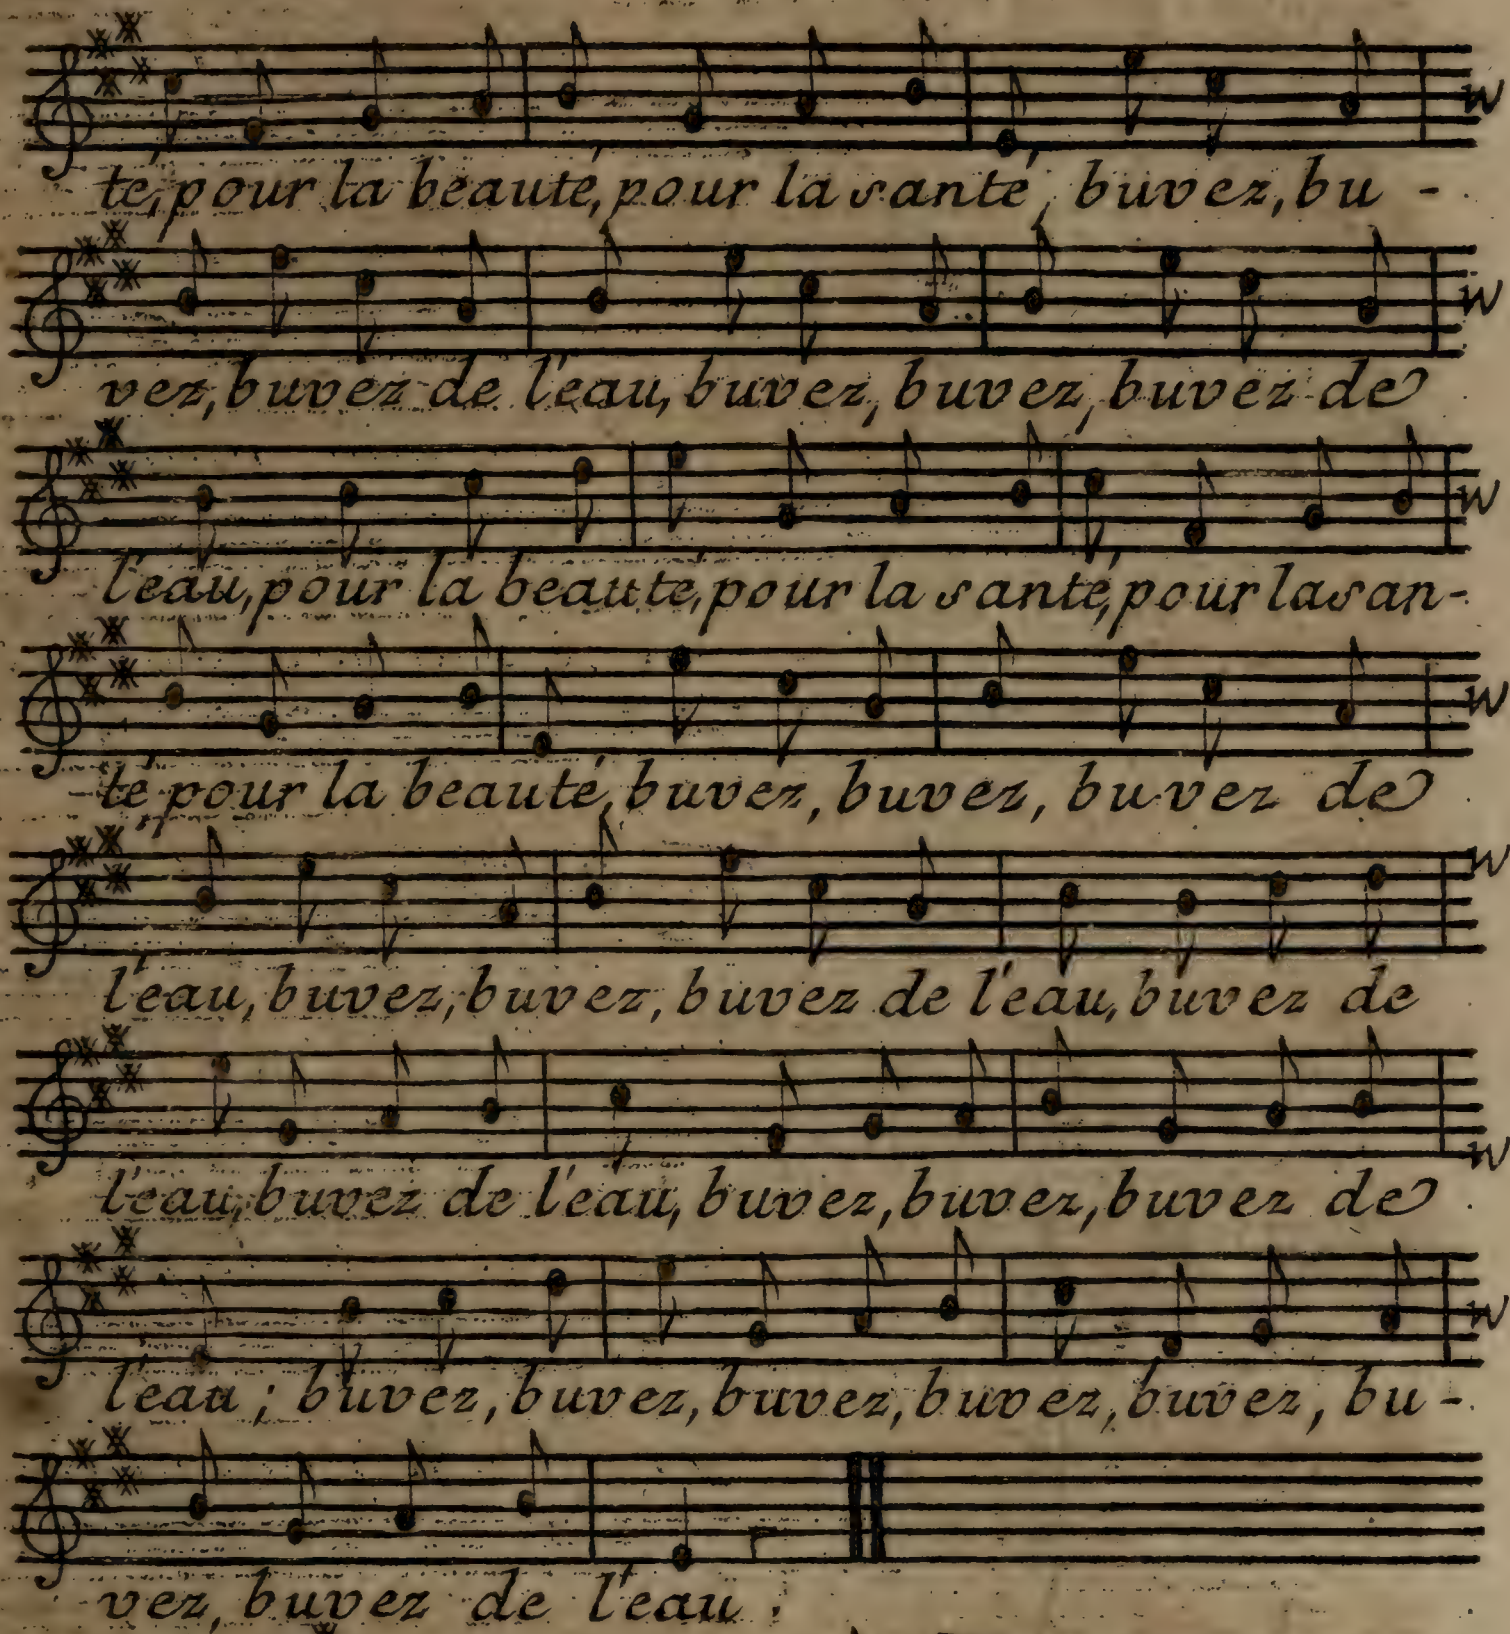 té, pour la beauté, pour la santé, buvez, bu -
vez, buvez de l'eau, buvez, buvez, buvez de
l'eau, pour la beauté, pour la santé, pour la san-
té pour la beauté, buvez, buvez, buvez de
l'eau, buvez, buvez, buvez de l'eau, buvez de
l'eau, buvez de l'eau, buvez, buvez, buvez de
l'eau ; buvez, buvez, buvez, buvez, buvez, bu -
vez, buvez de l'eau .